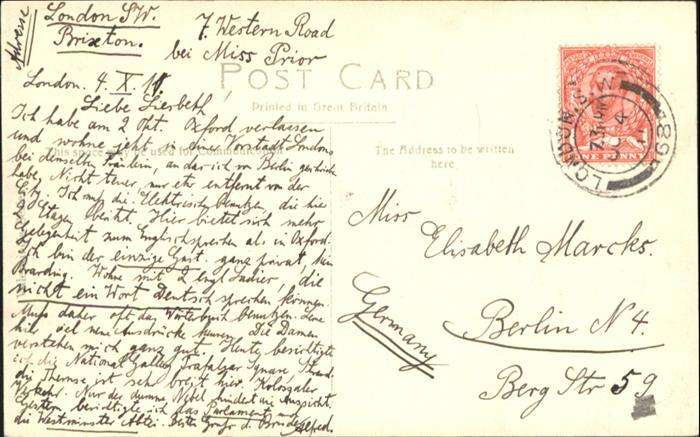 Adresse
London SW.
Brixton.
7. Western Road
bei Miss Prior
London. 4. X. 11.
Liebe Liesbeth
Ich habe am 2 Okt. Oxford verlassen
und wohne jetzt in einer Vorstadt Londons
bei demselben Fräulein, an das ich von Berlin geschrieben
habe. Nicht teuer, nur etw entfernt von der
City. Ich muß die Elektrische benutzen, die hier
2 Etagen besitzt. Hier bietet sich mehr
Gelegenheit zum Englischsprechen als in Oxford.
Ich bin der einzige Gast. ganz privat, kein
Boarding. Wohne mit 2 engl Ladies, die
nicht ein Wort Deutsch sprechen können.
Muß daher oft das Wörterbuch benutzen. Lerne
viel neue Ausdrücke kennen. Die Damen
verstehen mich ganz gut. Heute besichtigte
ich die National Gallery, Trafalgar Square, Strand.
die Themse ist sehr breit hier. Kolossaler
Verkehr. Nur der dumme Nebel hindert die Aussicht.
Gestern besichtigte ich das Parlament und
die Westminster Abtei. Beste Grüße d. Bruder Alfred.
POST CARD
Printed in Great Britain
This space may be used for Communication
The Address to be written
here.
ONE PENNY
LONDON S.W.
Miss
Elisabeth Marcks.
Berlin N 4.
Berg Str 59
Germany